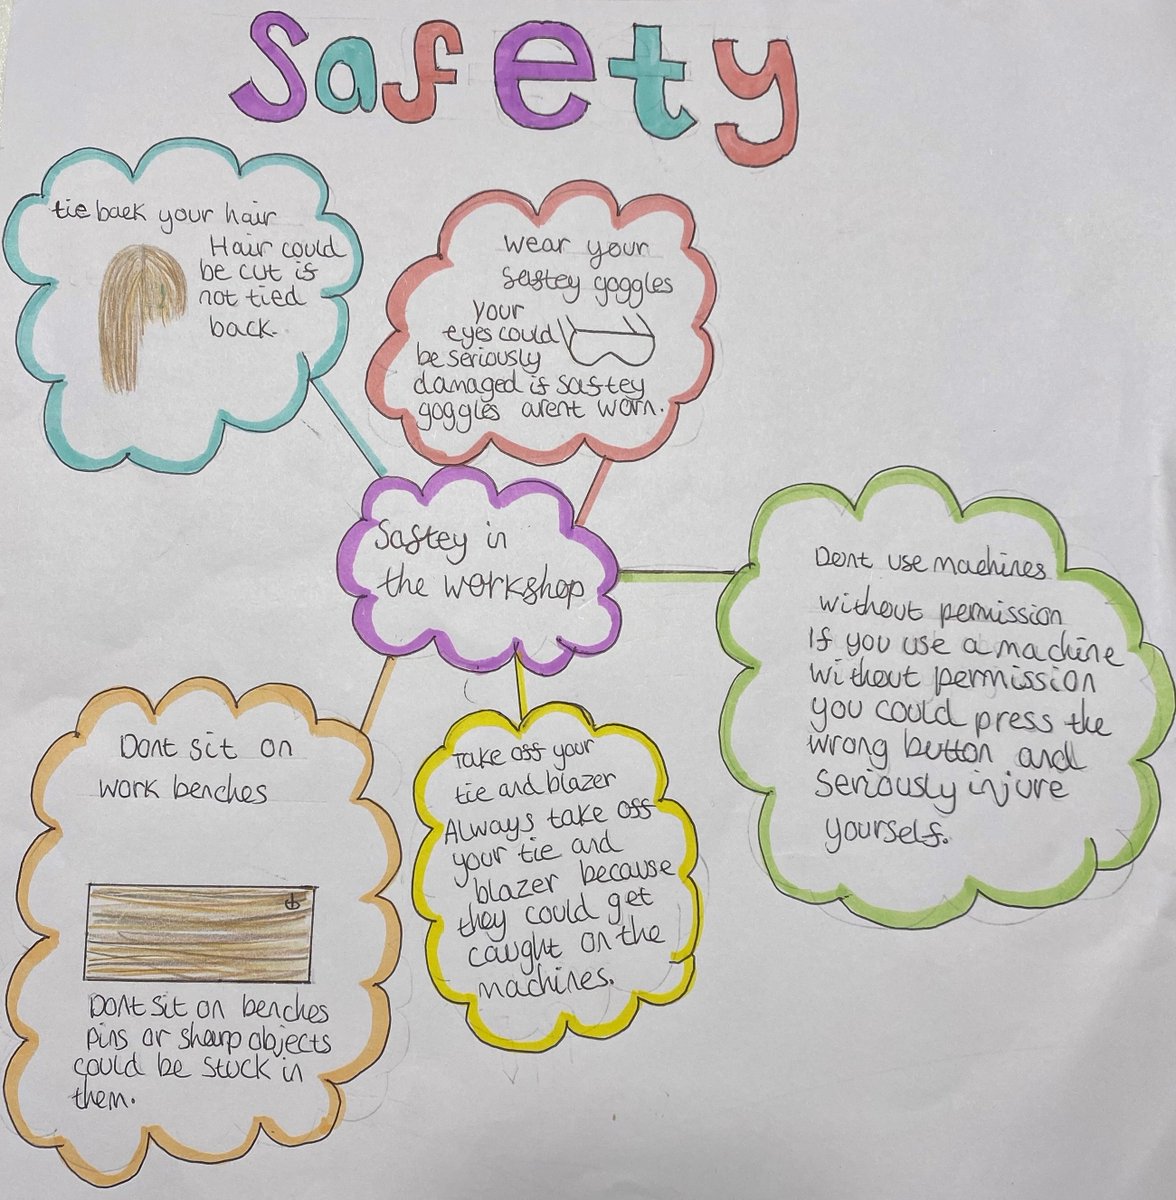 Safety
tie back your hair
Hair could
be cut if
not tied
back.
wear your
saftey goggles
your
eyes could
be seriously
damaged if saftey
goggles arent worn.
Saftey in
the workshop
Dont use machines
without permission
If you use a machine
without permission
you could press the
wrong button and
seriously injure
yourself.
Dont sit on
work benches
Dont sit on benches
pins or sharp objects
could be stuck in
them.
Take off your
tie and blazer
Always take off
your tie and
blazer because
they could get
caught on the
machines.